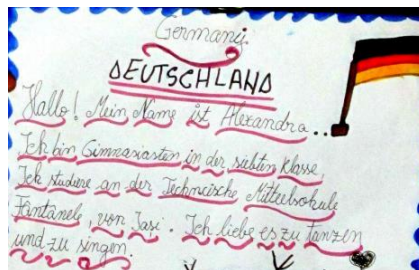 Germany.
DEUTSCHLAND
Hallo! Mein Name ist Alexandra...
Ich bin Gimnasiasten in der siebten Klasse
Ich studiere an der Techncische Mittelschule
Fântânele, von Iasi. Ich liebe es zu tanzen
und zu singen.